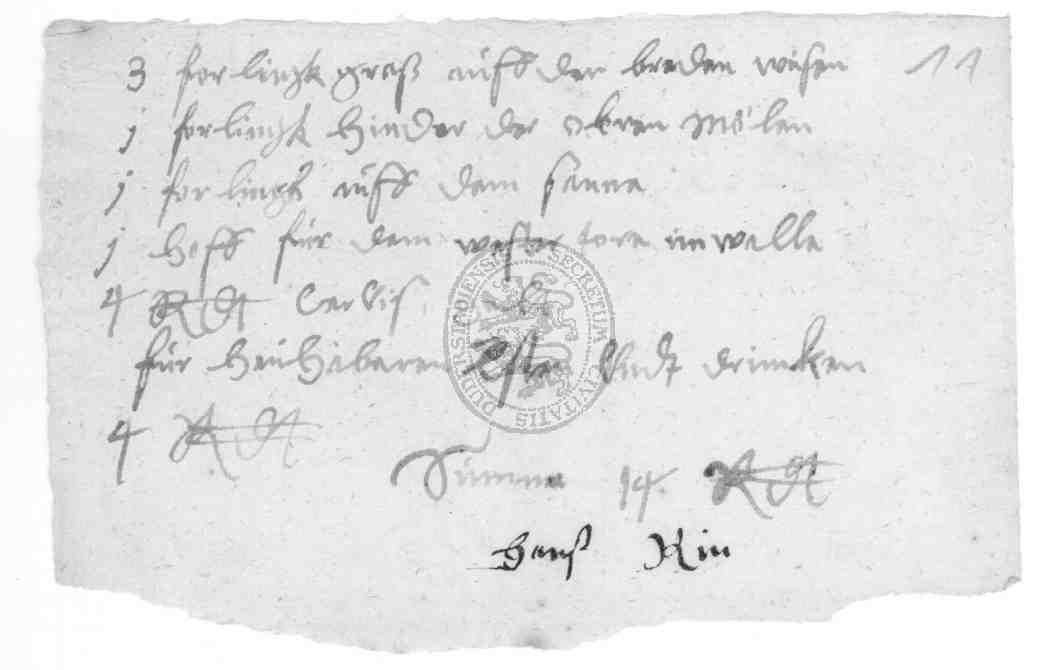 3 forlingk graß auff der breden wisen 11
j forlingk hinder der obren Mölen
j forlingk auff dem
j hoff für dem wester tore im walle
4
für heuhabaren Esten Undt drincken
4
Summa 14
Hans Rin
SECRETUM CIVITATIS DUDERSTADIENSIS